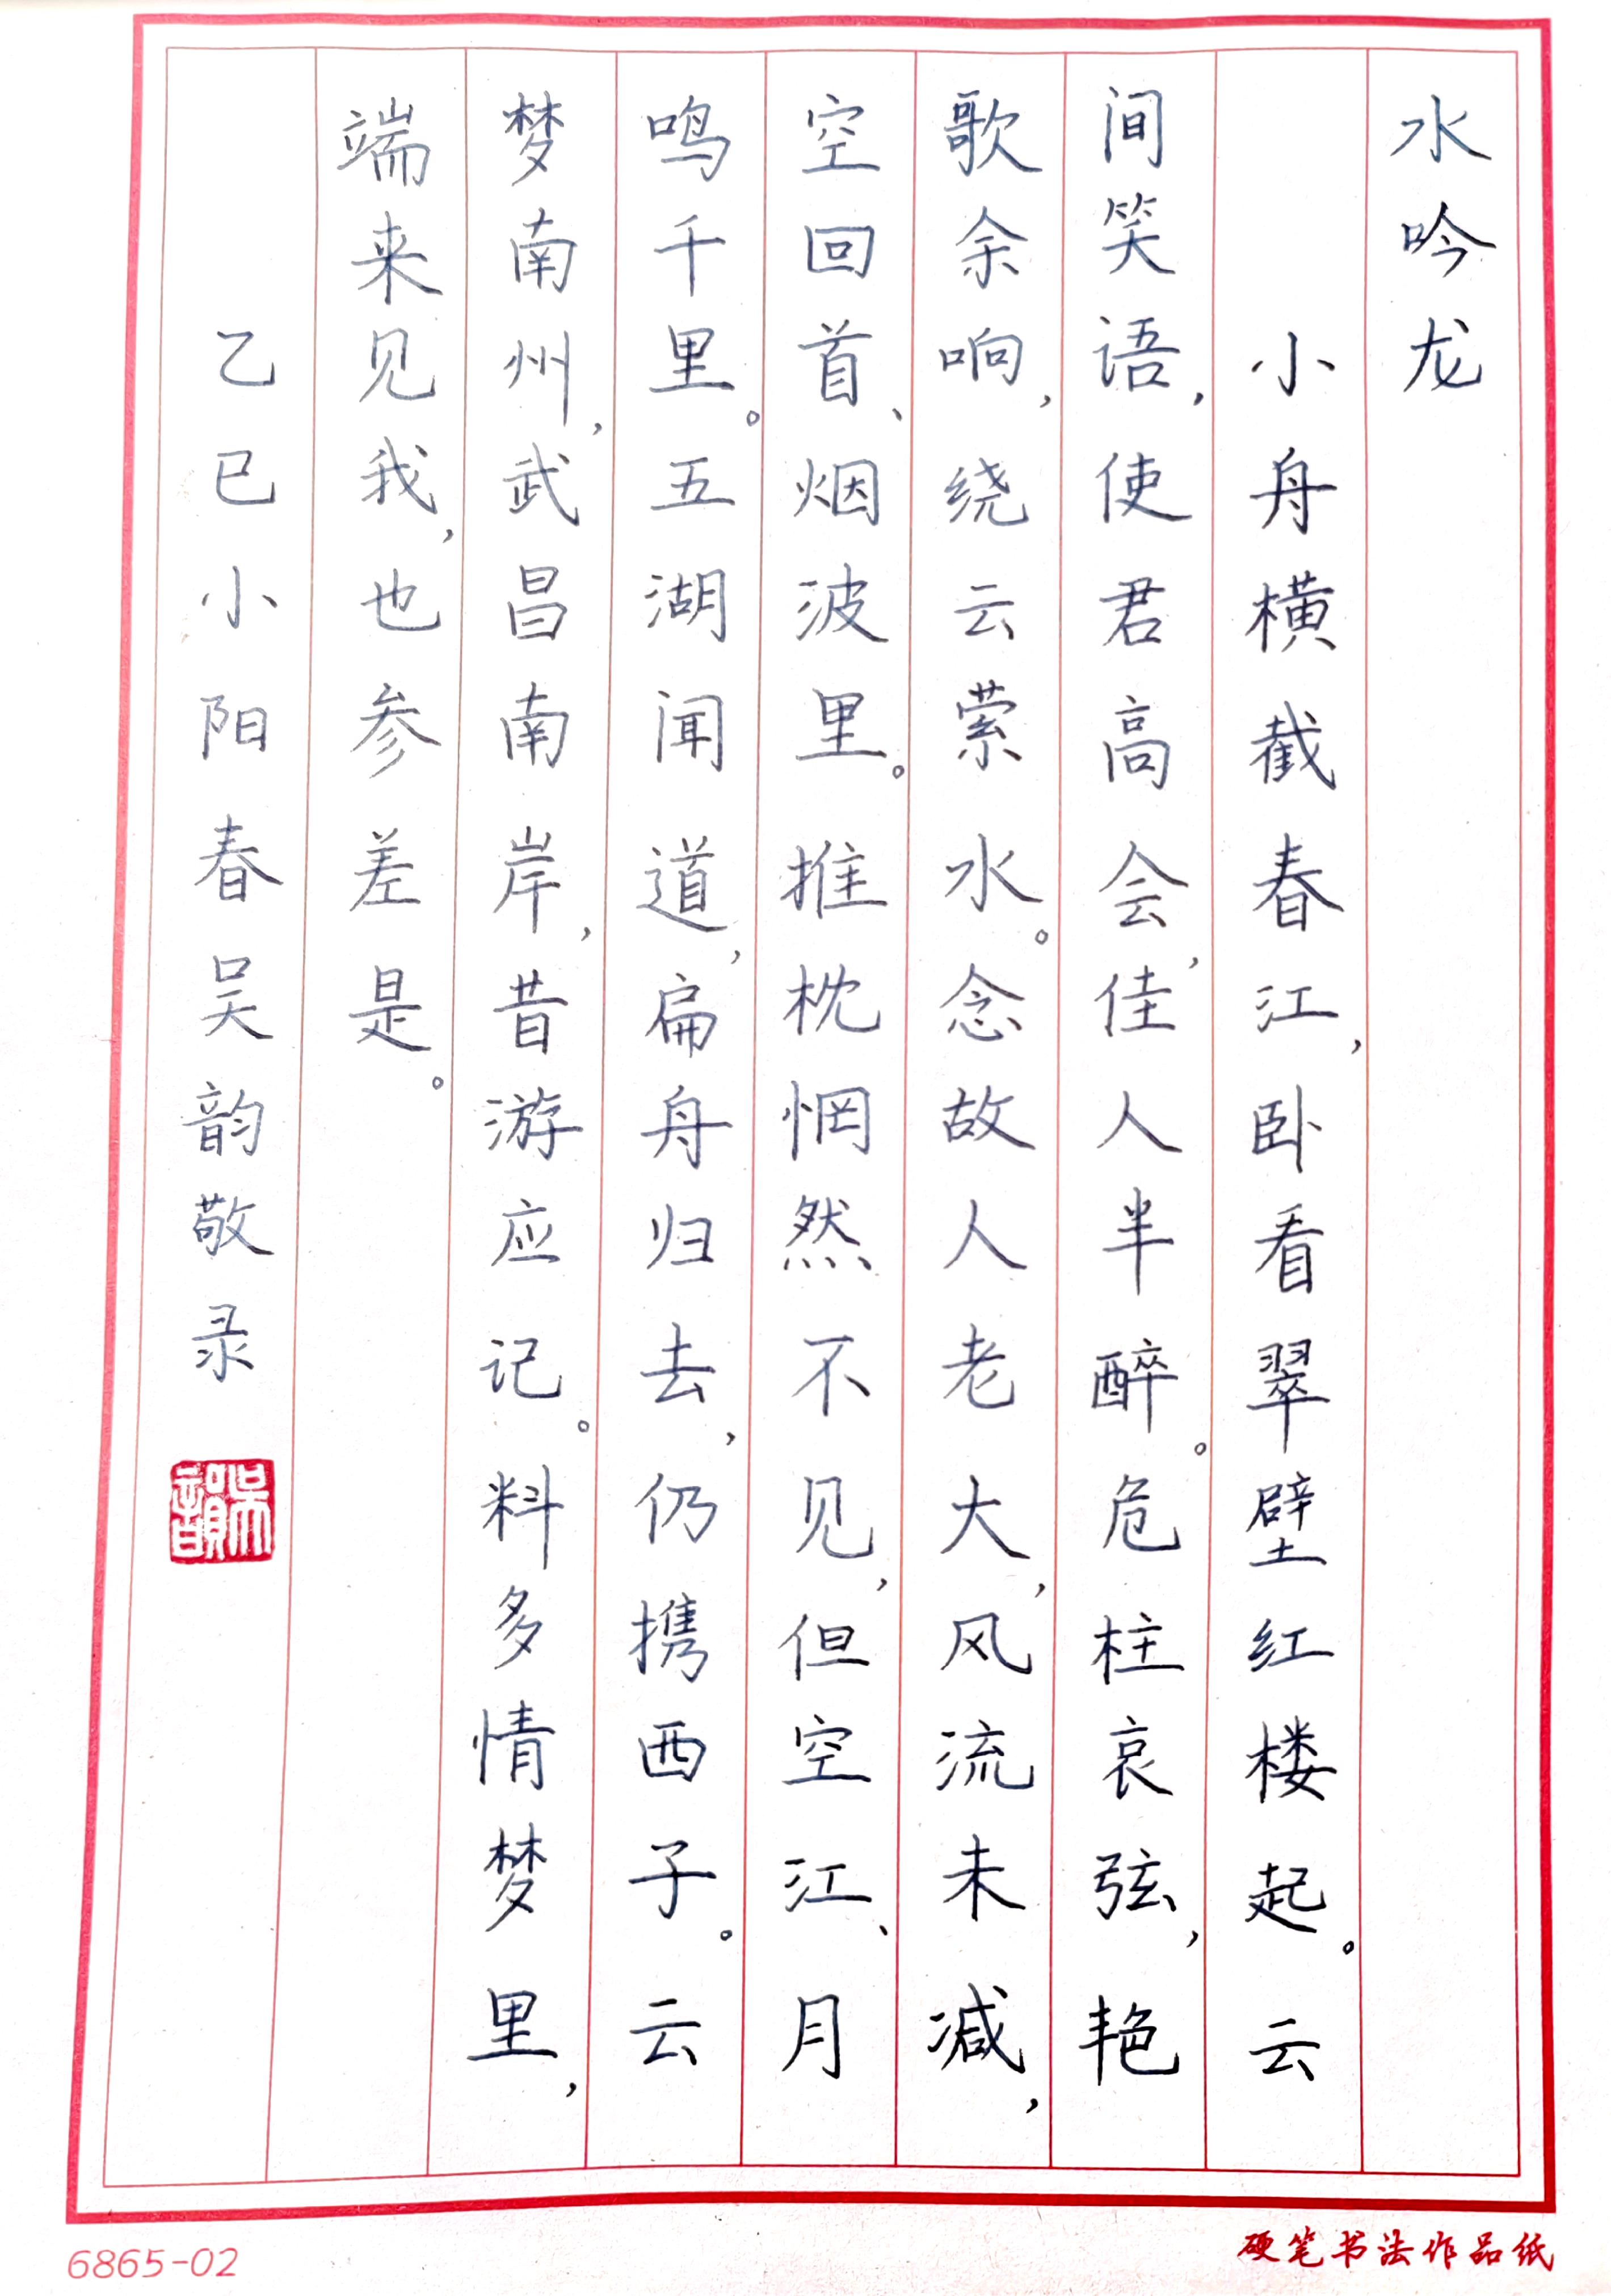 水吟龙
小舟横截春江,卧看翠壁红楼起。云
间笑语,使君高会,佳人半醉。危柱哀弦,艳
歌余响,绕云萦水。念故人老大,风流未减,
空回首、烟波里。推枕惘然不见,但空江、月
鸣千里。五湖闻道,扁舟归去,仍携西子。云
梦南州,武昌南岸,昔游应记。料多情梦里,
端来见我,也参差是。
乙巳小阳春吴韵敬录
吴韵
6865-02
硬笔书法作品纸